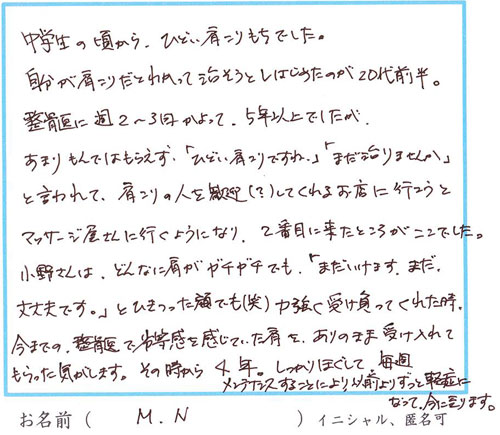 中学生の頃から、ひどい肩こりもちでした。
自分が肩こりだとわかって治そうとしはじめたのが20代前半。
整骨医に週2〜3回かよって、5年以上でしたが、
あまりもんではもらえず、「ひどい肩こりですね。」「まだ治りませんか」
と言われて、肩こりの人を歓迎(?)してくれるお店に行こうと
マッサージ屋さんに行くようになり、2番目に来たところがここでした。
小野さんは、どんなに肩がガチガチでも、「まだいけます、まだ、
丈夫です。」とひきつった顔でも(笑)力強く受け負ってくれた時、
今までの、整骨医で劣等感を感じていた肩を、ありのまま受け入れて
もらった気がします。その時から4年。しっかりほぐして、毎週
メンテナンスすることにより以前よりずっと軽症に
なって、今に至ります。
お名前( M.N )イニシャル、匿名可